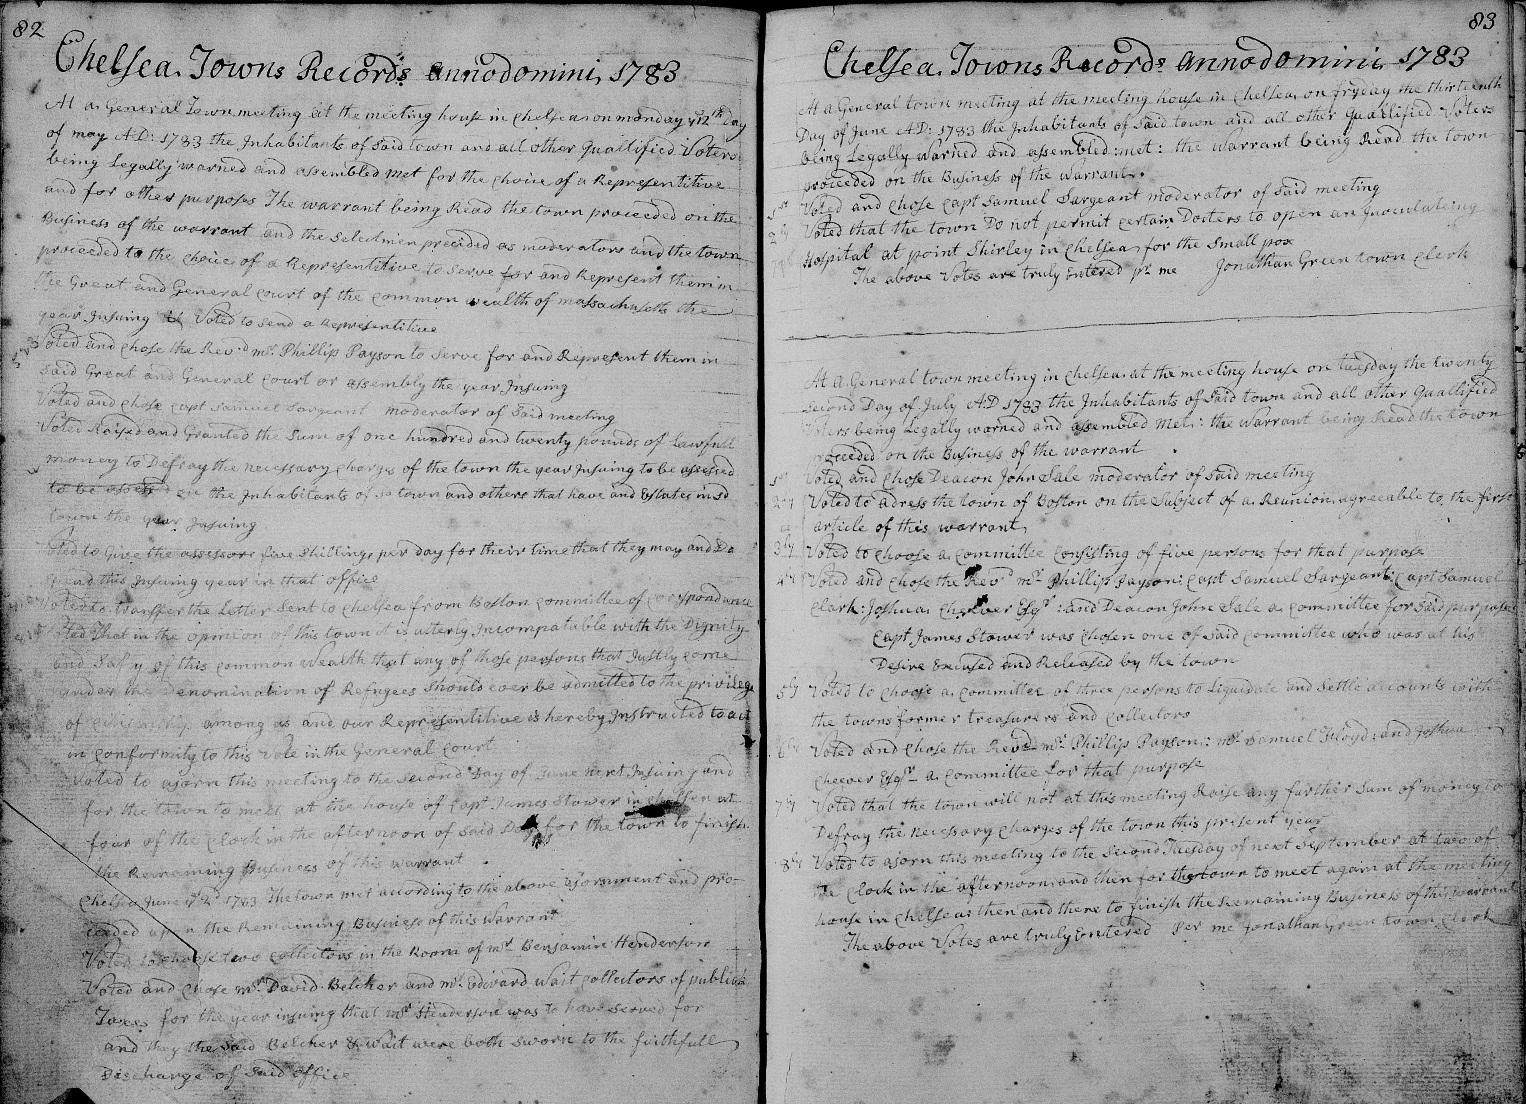 82
Chelsea Towns Records annodomini 1783
At a General Town meeting att the meeting house in Chelsea on monday ye 12th day
of may AD: 1783 the Inhabitants of Said town and all other Quallified Voters
being Legally warned and assembled met for the Choice of a Representitive
and for other purposes The warrant being Read the town proceeded on the
Business of the warrant and the Selectmen preceided as moderators and the town
proceeded to the choice of a Representitive to Serve for and Represent them in
the Great and General Court of the Common wealth of massachusetts the
year Insuing Voted to Send a Representitive
Voted and Chose the Revd mr Phillip Payson to Serve for and Represent them in
Said Great and General Court or assembly the year Insuing
Voted and Chose Capt Samuel Sargeant moderator of Said meeting
Voted Raised and Granted the Sum of one hundred and twenty pounds of Lawfull
money to Defray the necessary Charges of the town the year Insuing to be assessed
to be assest on the Inhabitants of sd town and others that have and Estates in sd
town the year Insuing
Voted to Give the assessors five Shillings per day for their time that they may and Do
Spend this Insuing year in that office
Voted to transfer the Letter Sent to Chelsea from Boston Committee of Correspondence
Voted That in the opinion of this town it is utterly Incompatable with the Dignity
and Safty of this common wealth that any of those persons that Justly come
under the Denomination of Refugees Should ever be admitted to the privilege
of citizenship among us and our Representitive is hereby Instructed to act
in Conformity to this Vote in the General Court
Voted to ajorn this meeting to the Second Day of June next Insuing and
for the town to meet at the house of Capt James Stower in Chelsea at
four of the Clock in the afternoon of Said Day for the town to finish
the Remaining Business of this warrant
Chelsea June ye 2d 1783 The town met according to the above ajornment and pro-
ceeded upon the Remaining Business of this Warrant
Voted to Choose two Collectors in the Room of mr Benjamin Henderson
Voted and Chose mr David Belcher and mr Edward Wait Collectors of publick
Taxes for the year insuing that mr Henderson was to have Served for
and they the Said Belcher & Wait were both Sworn to the faithfull
Discharge of Said office
83
Chelsea Towns Records annodomini 1783
At a General town meeting at the meeting house in Chelsea on fryday the thirteenth
Day of June AD: 1783 the Inhabitants of Said town and all other Quallified Voters
being Legally Warned and assembled: met: the Warrant being Read the town
proceeded on the Business of the Warrant
1st Voted and Chose Capt Samuel Sargeant moderator of Said meeting
2ly Voted that the town Do not permit Certain Docters to open an Inoculateing
Hospital at point Shirley in Chelsea for the Small pox
The above Votes are truly Entered pr me Jonathan Green town Clerk
At a General town meeting in Chelsea at the meeting house on tuesday the twenty
Second Day of July AD 1783 the Inhabitants of Said town and all other Quallified
Voters being Legally warned and assembled Met: the Warrant being Read the town
proceeded on the Business of the warrant
1st Voted and Chose Deacon John Sale moderator of Said meeting
2ly Voted to adress the town of Boston on the Subject of a Reunion agreeable to the first
article of this warrant
3ly Voted to Choose a Committee Consisting of five persons for that purpose
4ly Voted and Chose the Revd mr Phillip Payson: Capt Samuel Sargeant: Capt Samuel
Clark: Joshua Cheever Esqr: and Deacon John Sale a Committee for Said purpose
Capt James Stower was Chosen one of Said Committee who was at his
Desire Excused and Released by the town
5ly Voted to Choose a Committee of three persons to Liquidate and Settle accounts with
the towns former treasurers and Collectors
6ly Voted and Chose the Revd mr Phillip Payson: mr Samuel Floyd: and Joshua
Cheever Esqr a Committee for that purpose
7ly Voted that the town will not at this meeting Raise any further Sum of money to
Defray the necessary Charges of the town this present year
8ly Voted to ajorn this meeting to the Second Tuesday of next September at two of
the Clock in the afternoon and then for the town to meet again at the meeting
house in Chelsea then and there to finish the Remaining Business of this warrant
The above Votes are truly Entered Per me Jonathan Green town Clerk